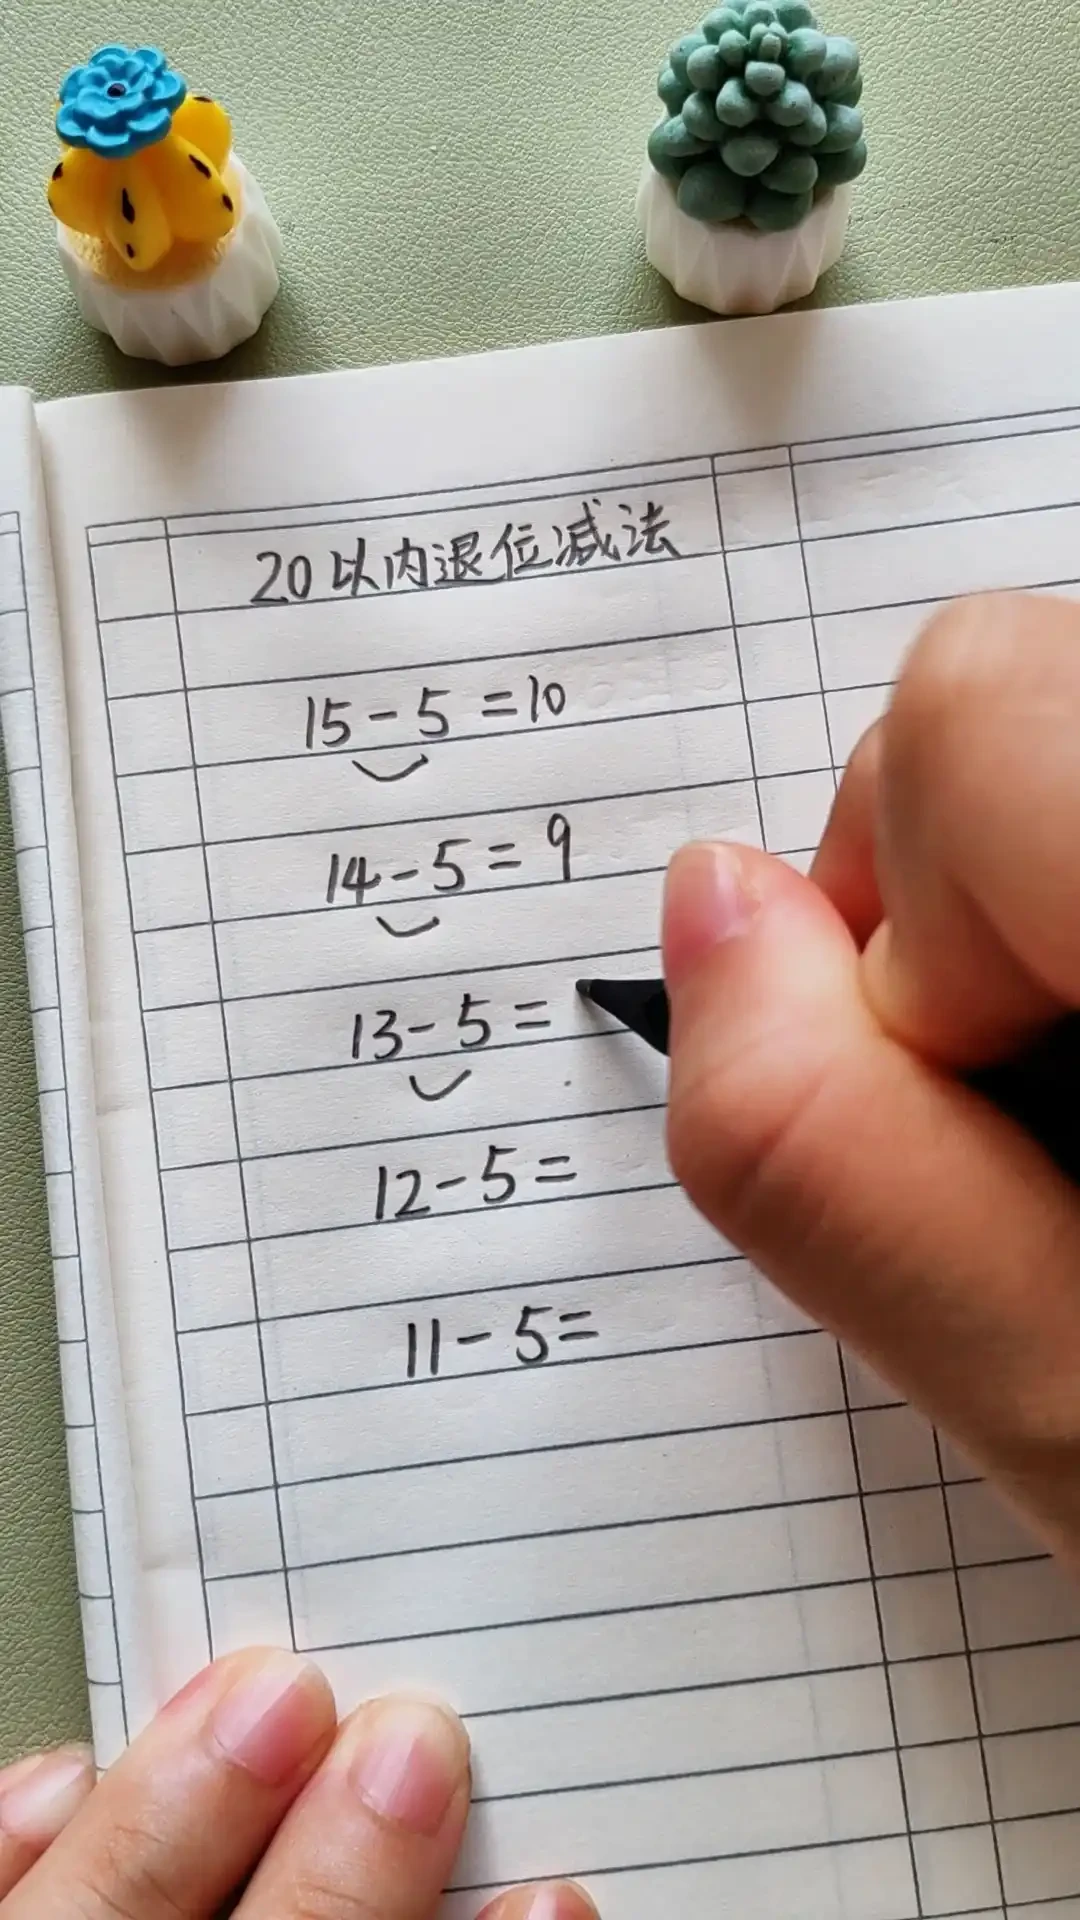 20以内退位减法
15-5=10
14-5=9
13-5=
12-5=
11-5=